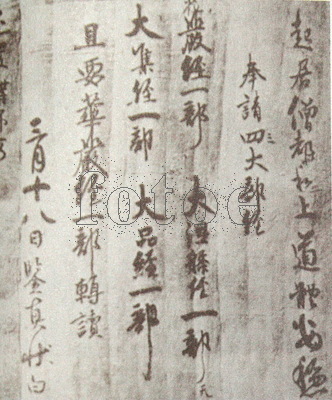 起居僧都和上道體安穩
奉請四大部經
嚴經一部 大涅槃經一部
大集經一部 大品經一部
且要華嚴經一部轉讀
三月十八日鑒真狀白
fotoe